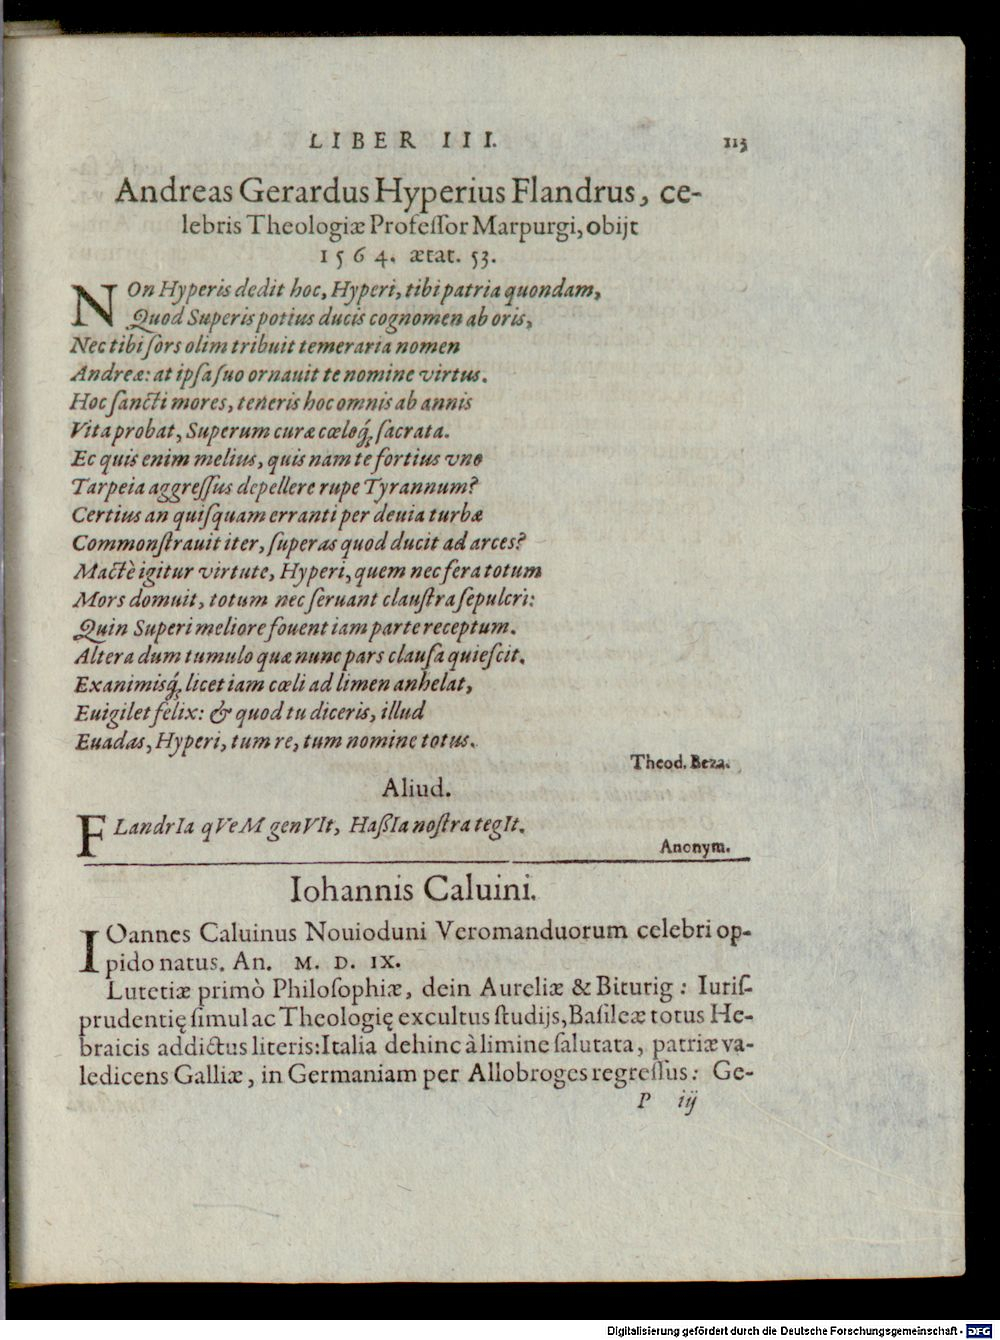 LIBER III. 113
Andreas Gerardus Hyperius Flandrus, ce-
lebris Theologiæ Profeſſor Marpurgi, obijt
1564. ætat. 53.
NOn Hyperis dedit hoc, Hyperi, tibi patria quondam,
Quod Superis potius ducis cognomen ab oris,
Nec tibi ſors olim tribuit temeraria nomen
Andreæ: at ipſa ſuo ornauit te nomine virtus.
Hoc ſancti mores, teneris hoc omnis ab annis
Vita probat, Superum curæ cœloq́; ſacrata.
Ec quis enim melius, quis nam te fortius vno
Tarpeia aggreſſus depellere rupe Tyrannum?
Certius an quiſquam erranti per deuia turbæ
Commonſtrauit iter, ſuperas quod ducit ad arces?
Mactè igitur virtute, Hyperi, quem nec fera totum
Mors domuit, totum nec ſeruant clauſtra ſepulcri:
Quin Superi meliore fouent iam parte receptum.
Altera dum tumulo quæ nunc pars clauſa quieſcit,
Exanimisq́; licet iam cœli ad limen anhelat,
Euigilet felix: & quod tu diceris, illud
Euadas, Hyperi, tum re, tum nomine totus.
Theod. Beza.
Aliud.
FLandrIa qVeM genVIt, HaßIa noſtra tegIt.
Anonym.
Iohannis Caluini.
IOannes Caluinus Nouioduni Veromanduorum celebri op-
pido natus. An. M. D. IX.
Lutetiæ primò Philoſophiæ, dein Aureliæ & Biturig: Iuriſ-
prudentię ſimul ac Theologię excultus ſtudijs, Baſileæ totus He-
braicis addictus literis: Italia dehinc à limine ſalutata, patriæ va-
ledicens Galliæ, in Germaniam per Allobroges regreſſus: Ge-
P iij
Digitalisierung gefördert durch die Deutsche Forschungsgemeinschaft - DFG